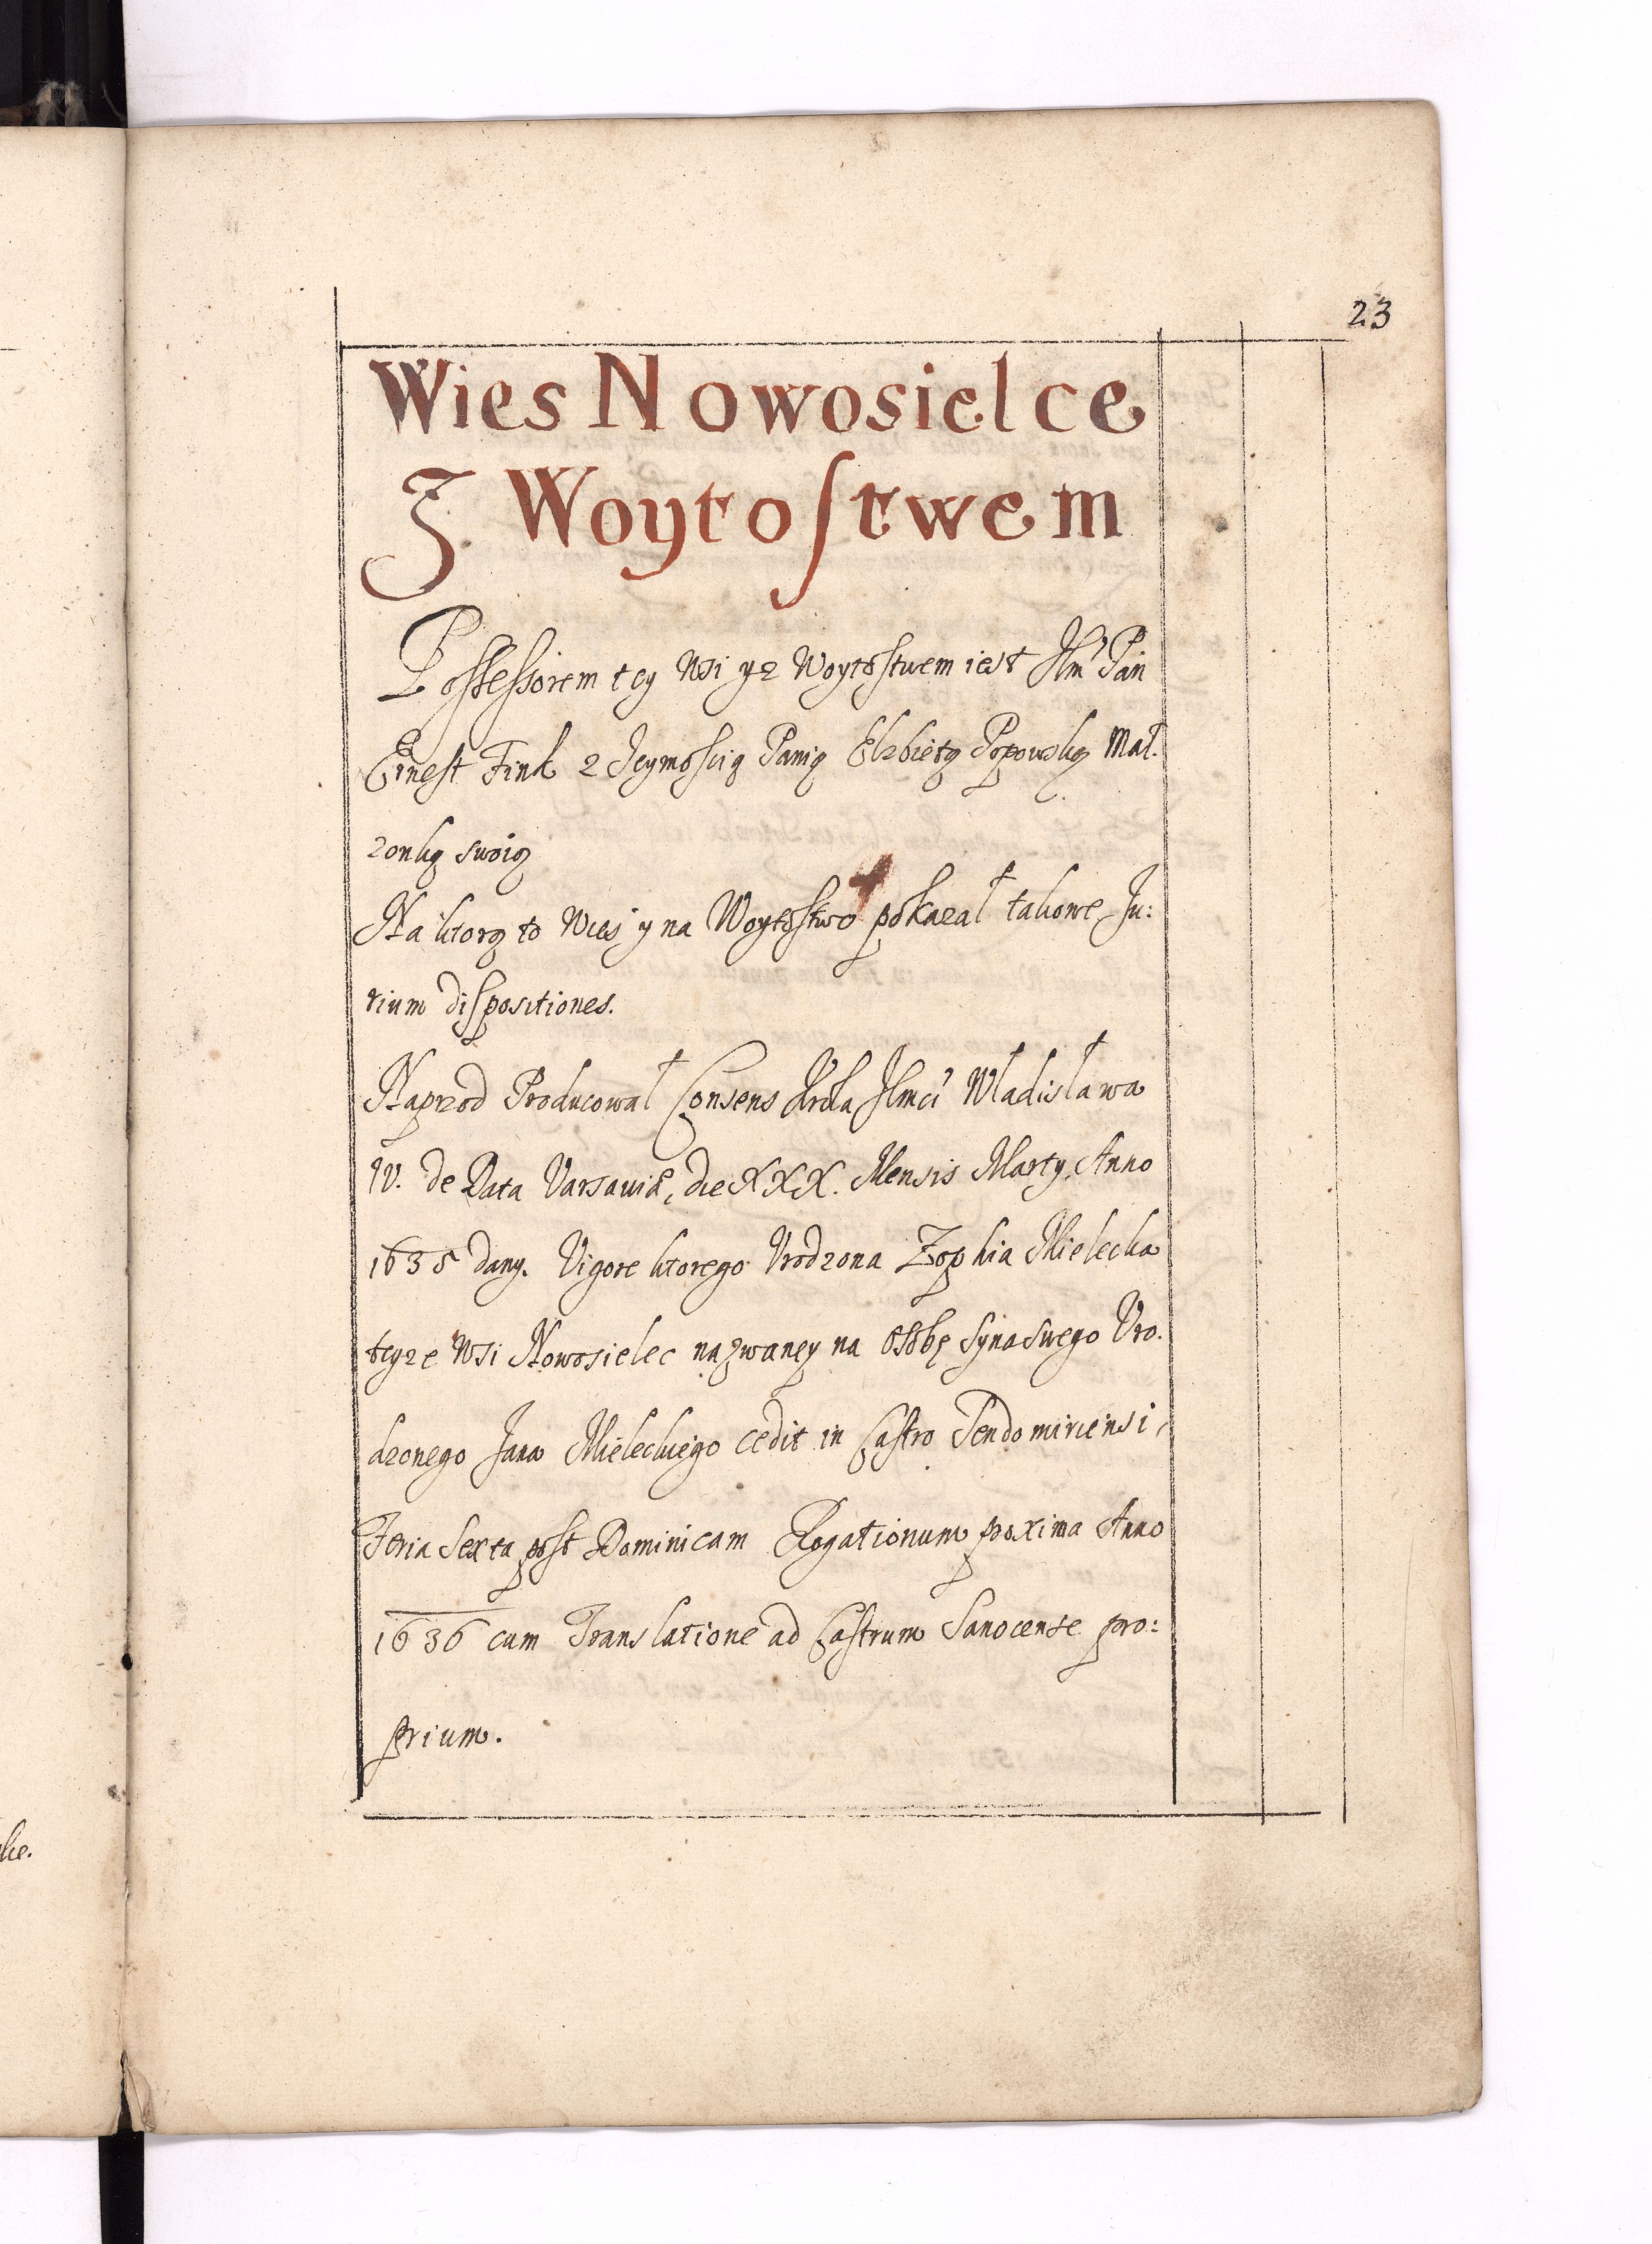 23
Wies Nowosielce
Z Woytostwem
Possessorem tey Wsi y z Woytostwem iest Jm Pan
Ernest Fink z Jeymoscią Panią Elzbietą Popowską Mał.
zonką swoią
Na ktorą to Wies y na Woytostwo pokazał takowe Ju:
rium dispositiones.
Naprzod Producował Consens Krola Jmci Władisława
IV. de Data Varsaviæ, die XXX. Mensis Marty, Anno
1635 dany. Vigore ktorego Vrodzona Zophia Mielecka
teyze Wsi Nowosielec nazwaney na osobę Syna Swego Vro.
dzonego Jana Mieleckiego cedit in Castro Sendomiriensi,
Feria Sexta post Dominicam Rogationum proxima Anno
1636 cum Translatione ad Castrum Sanocense pro:
prium.